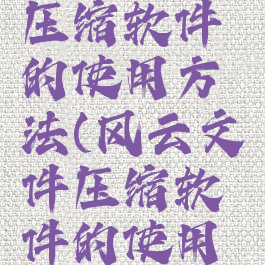 压缩软件
的使用方
法(风云文
件压缩软
件的使用